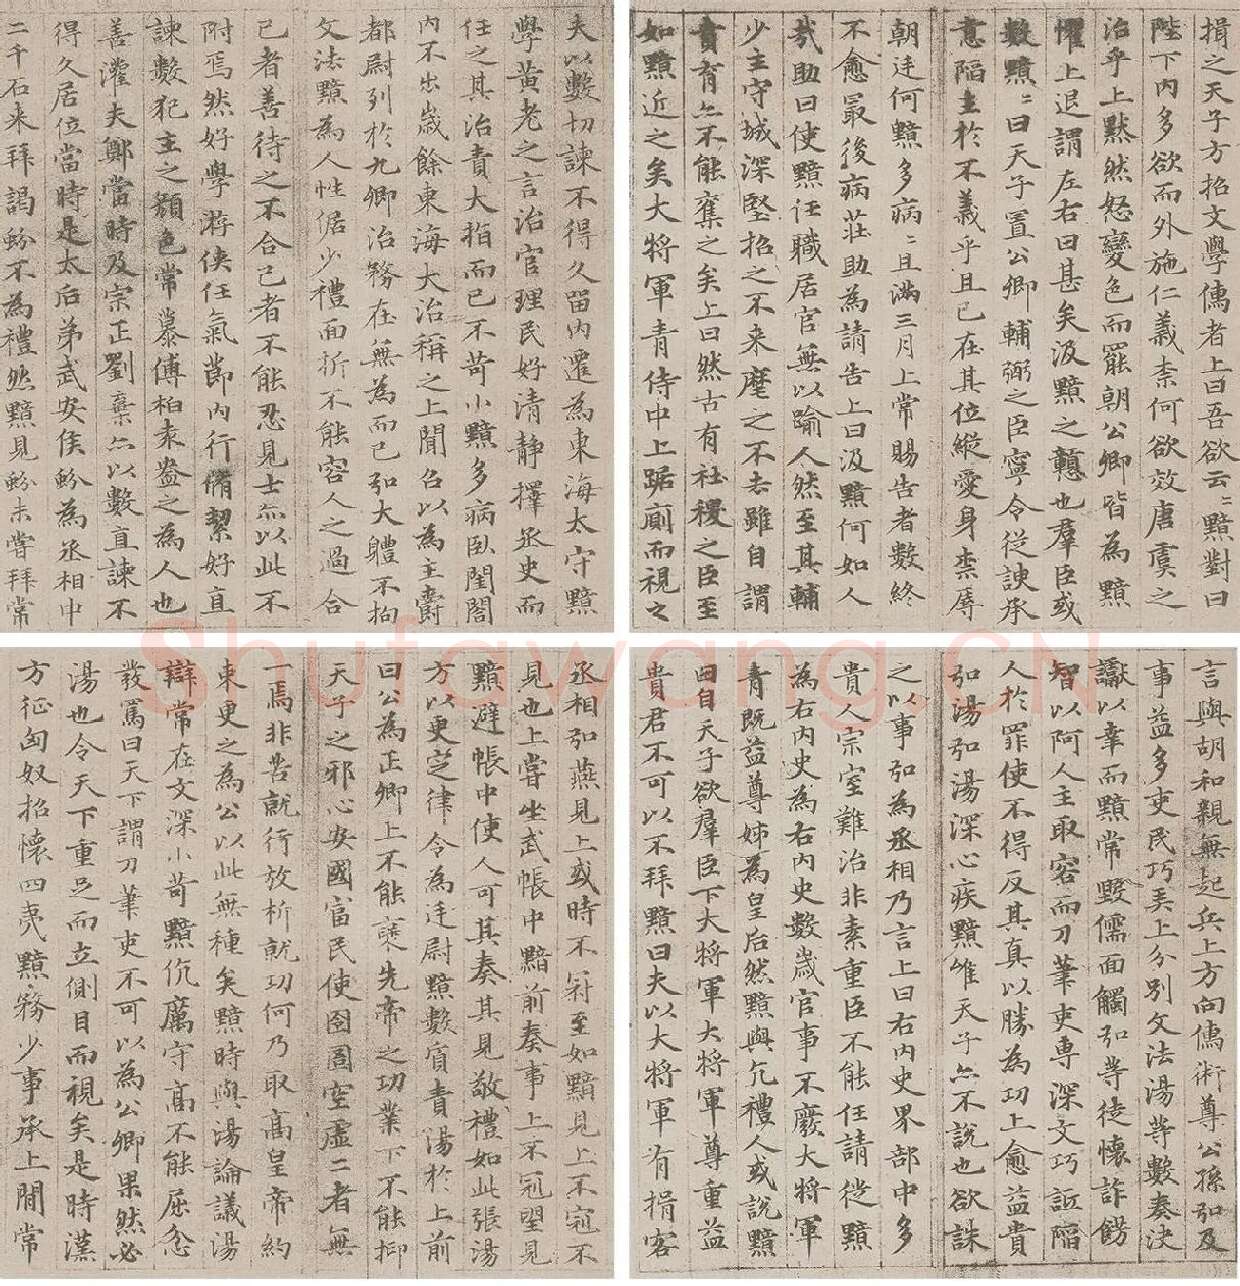 夫以數切諫不得久留內遷為東海太守黯
學黃老之言治官理民好清靜擇丞史而
任之其治責大指而已不苛小黯多病臥閨閤
內不出歲餘東海大治稱之上聞召以為主爵
都尉列於九卿治務在無為而已弘大軆不拘
文法黯為人性倨少禮面折不能容人之過合
己者善待之不合己者不能忍見士亦以此不
附焉然好學游俠任氣節內行脩絜好直
諫數犯主之顏色常慕傅柏袁盎之為人也
善灌夫鄭當時及宗正劉棄亦以數直諫不
得久居位當時是太后弟武安侯蚡為丞相中
二千石来拜謁蚡不為禮然黯見蚡未嘗拜常
揖之天子方招文學儒者上曰吾欲云〻黯對曰
陛下內多欲而外施仁義柰何欲效唐虞之
治乎上黙然怒變色而罷朝公卿皆為黯
懼上退謂左右曰甚矣汲黯之戇也羣臣或
數黯〻曰天子置公卿輔弼之臣寧令從諛承
意陷主於不義乎且已在其位縱愛身柰辱
朝廷何黯多病〻且滿三月上常賜告者數終
不愈最後病莊助為請告上曰汲黯何如人
哉助曰使黯任職居官無以踰人然至其輔
少主守城深堅招之不来麾之不去雖自謂
賁育亦不能奪之矣上曰然古有社稷之臣至
如黯近之矣大將軍青侍中上踞廁而視之
丞相弘燕見上或時不冠至如黯見上不冠不
見也上嘗坐武帳中黯前奏事上不冠望見
黯避帳中使人可其奏其見敬禮如此張湯
方以更定律令為廷尉黯數質責湯於上前
曰公為正卿上不能襃先帝之功業下不能抑
天子之邪心安國富民使囹圄空虛二者無
一焉非苦就行放析就功何乃取高皇帝約
束更之為公以此無種矣黯時與湯論議湯
辯常在文深小苛黯伉厲守高不能屈忿
發罵曰天下謂刀筆吏不可以為公卿果然必
湯也令天下重足而立側目而視矣是時漢
方征匈奴招懷四夷黯務少事承上間常
言與胡和親無起兵上方向儒術尊公孫弘及
事益多吏民巧弄上分別文法湯等數奏決
讞以幸而黯常毀儒面觸弘等徒懷詐飾
智以阿人主取容而刀筆吏專深文巧詆陷
人於罪使不得反其真以勝為功上愈益貴
弘湯弘湯深心疾黯雖天子亦不說也欲誅
之以事弘為丞相乃言上曰右內史界部中多
貴人宗室難治非素重臣不能任請徙黯
為右內史為右內史數歲官事不廢大將軍
青既益尊姊為皇后然黯與亢禮人或說黯
曰自天子欲羣臣下大將軍大將軍尊重益
貴君不可以不拜黯曰夫以大將軍有揖客
Shufawang.CN